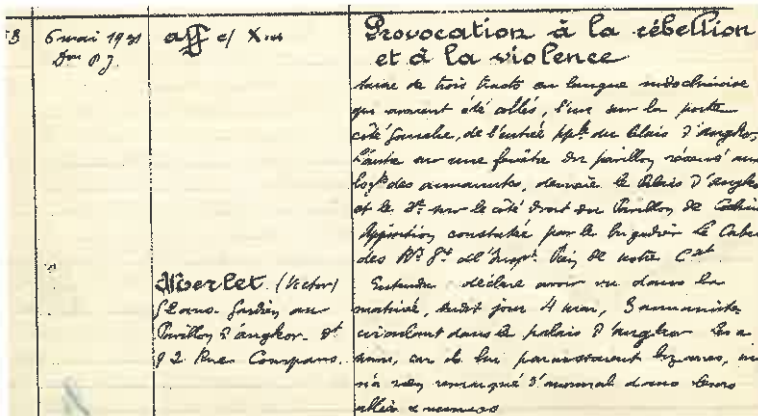 6 mai 1931
Don P.J.
aff c/ X...
Provocation à la rébellion
et à la violence
Saisie de trois tracts en langue indochinoise
qui avaient été collés, l'un sur la porte
côté gauche, de l'entrée pple du Palais d'Angkor,
l'autre sur une fenêtre du pavillon réservé aux
des annamites, derrière le Palais d'Angkor
et le 3e sur le côté droit du Pavillon de
Apposition constatée par le brigadier Le
des de notre
Merlet (Victor)
ans. Gardien au
Pavillon d'Angkor. dt
92 Rue Compans.
Entendu déclare avoir vu dans la
matinée, dudit jour 4 mai, 3 annamites
circulant dans le palais d'Angkor
car ils lui paraissaient bizarres,
n'a rien remarqué d'anormal dans leurs
allées & venues